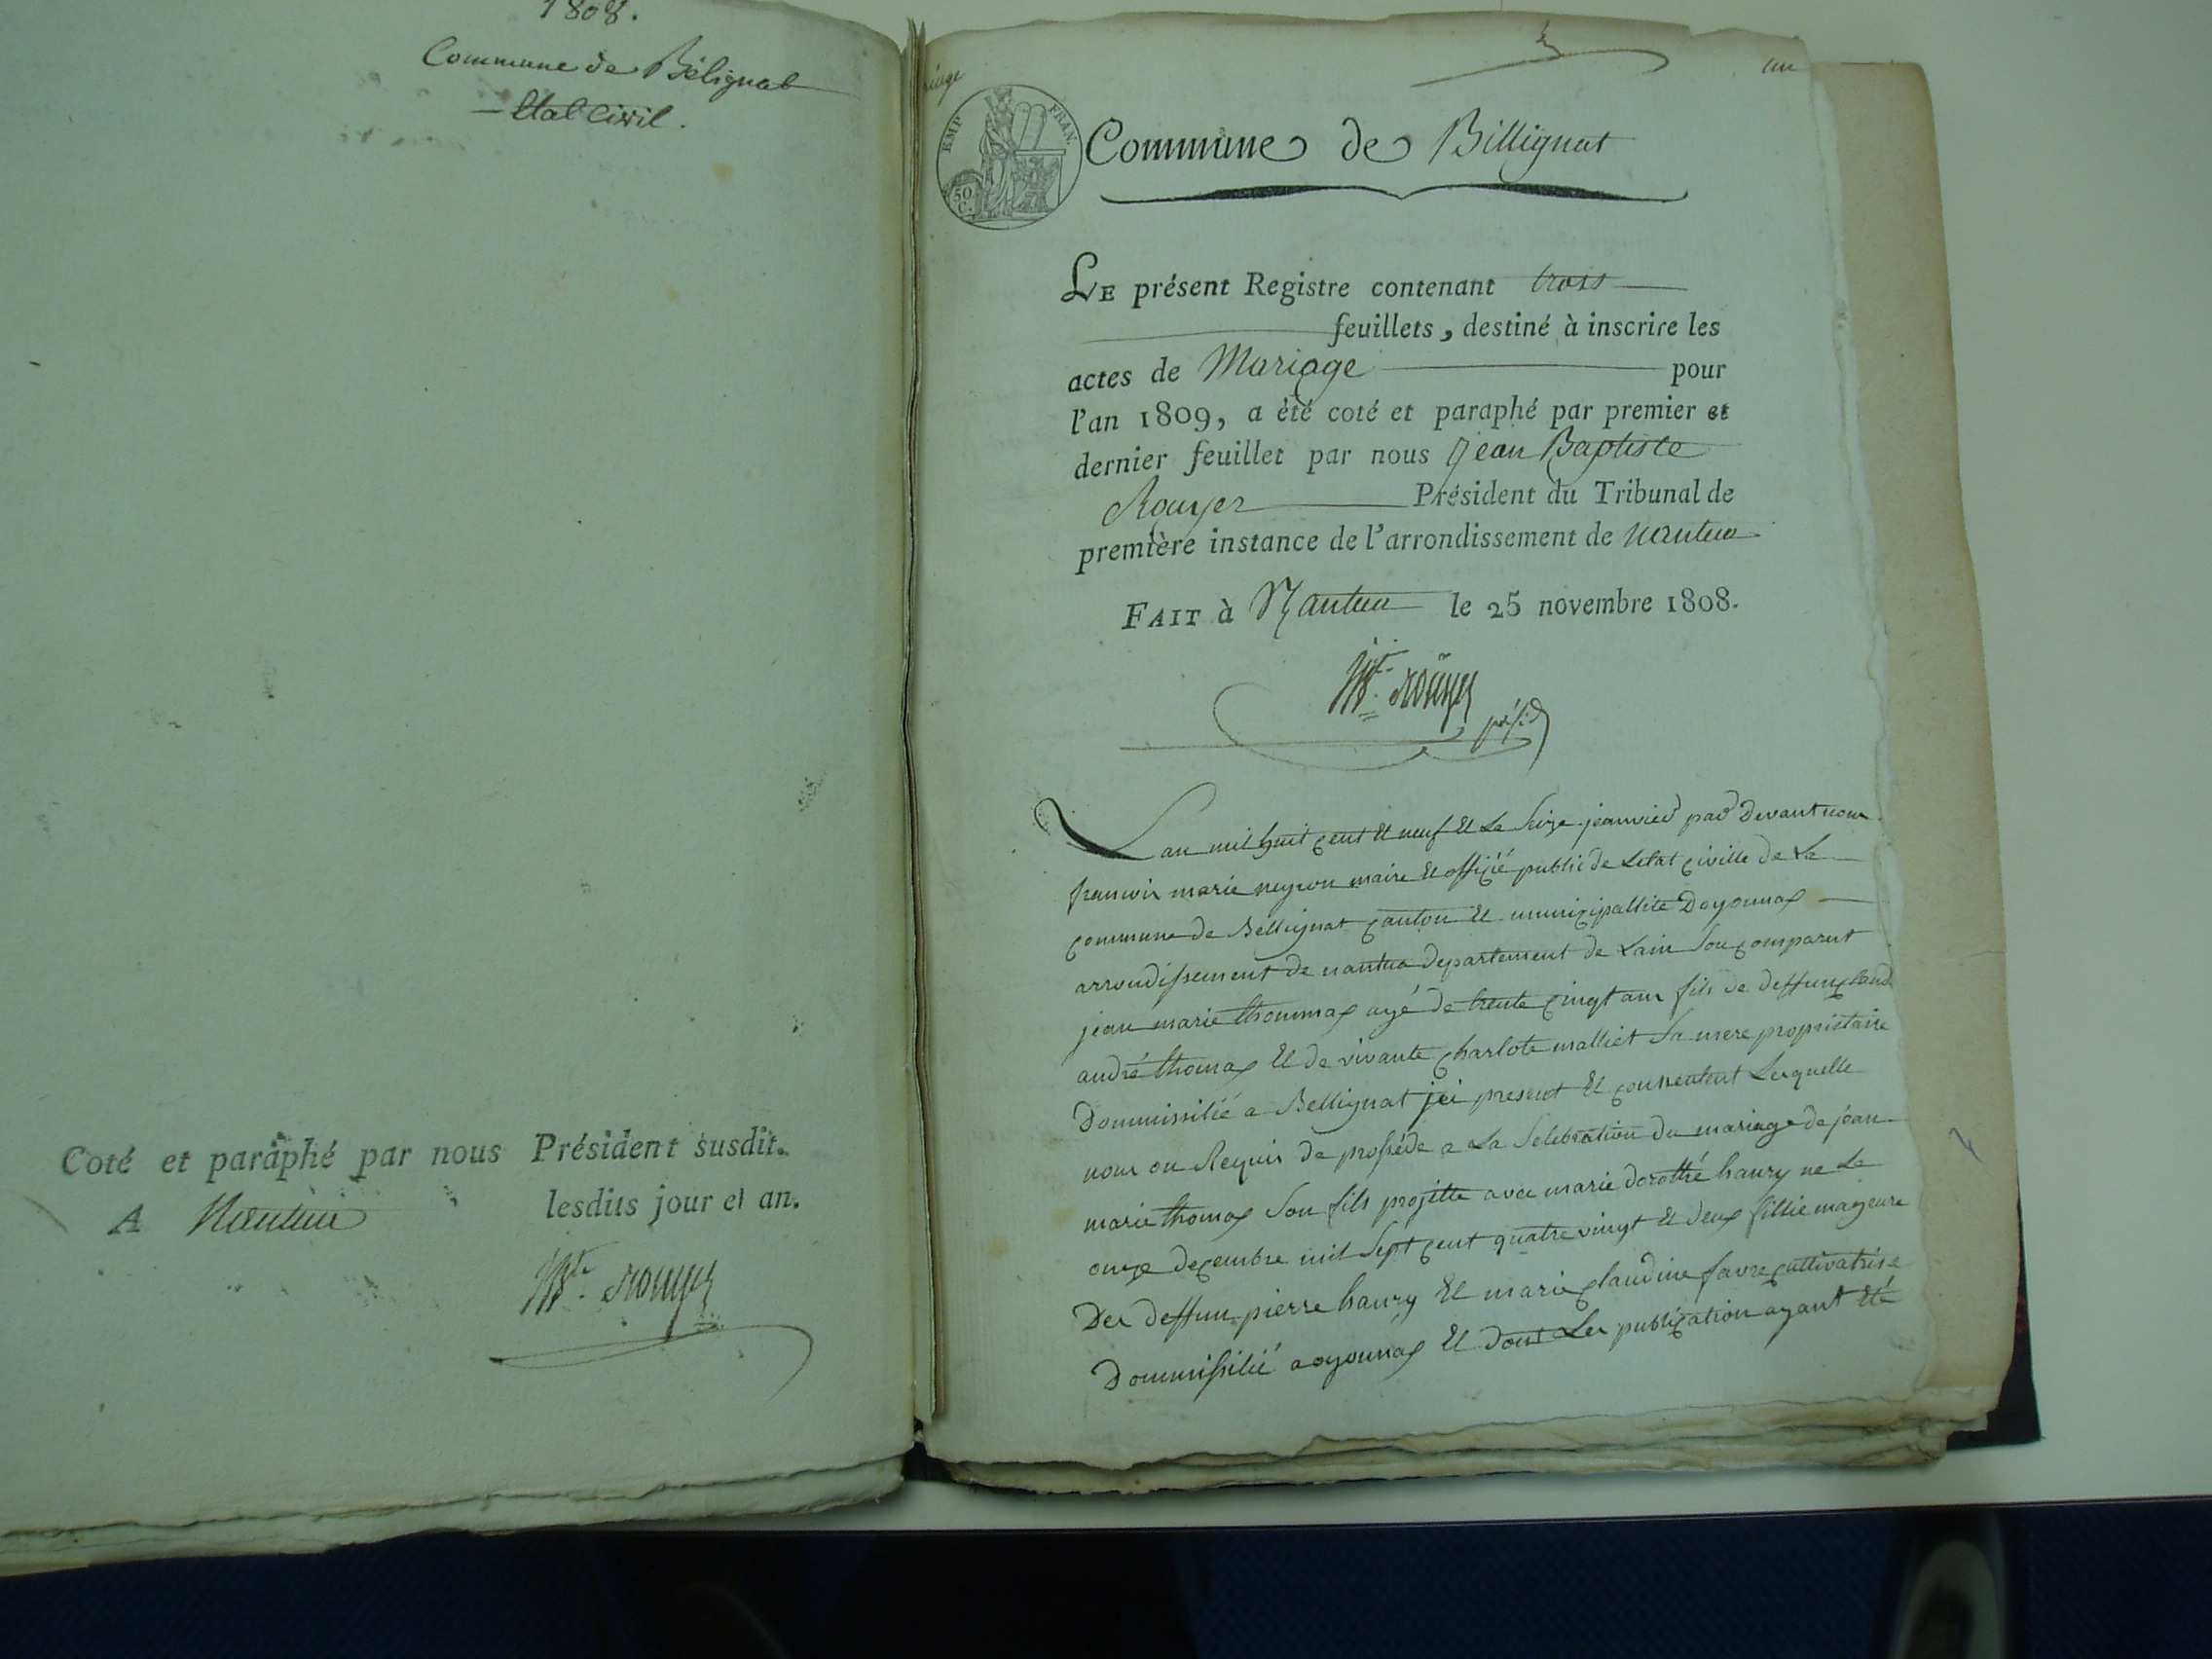 1808.
Commune de Bélignat
Etat Civil.
Coté et paraphé par nous Président susdit.
A Nantua lesdits jour et an.
JBte. Rouyer
EMP FRAN.
50 C.
un
Commune de Billignat
LE présent Registre contenant trois
feuillets, destiné à inscrire les
actes de Mariage pour
l'an 1809, a été coté et paraphé par premier et
dernier feuillet par nous Jean Baptiste
Rouyer Président du Tribunal de
première instance de l'arrondissement de nantua
FAIT à Nantua le 25 novembre 1808.
JBte. Rouyer
présid
Lan mil huit cent et neuf et Le Seize janvied pad Devant nous
francois marie neyron maire et officié public de Letat civille de La
commune de Bellignat canton et municipallite Doyonnax
arrondissement de nantua departement de Lain Sou comparut
jean marie thommax agé de trente cinqt ans fils de deffunt
andré thomax et de vivante charlote malliet Sa mere proprietaire
Dommissilié a Bellignat jci present et consentent Lesquelle
nous on Requis de prossédé a La Selebration du mariage de jean
marie thomax Son fils projetté avec marie dorothé hanry ne Le
onze decembre mil Sept cent quatre vingt et deux fillie mageure
Des deffun pierre hanry et marie claudine favre cultivatrise
Dommissilié a oyonnax et dont Les publication ayant été